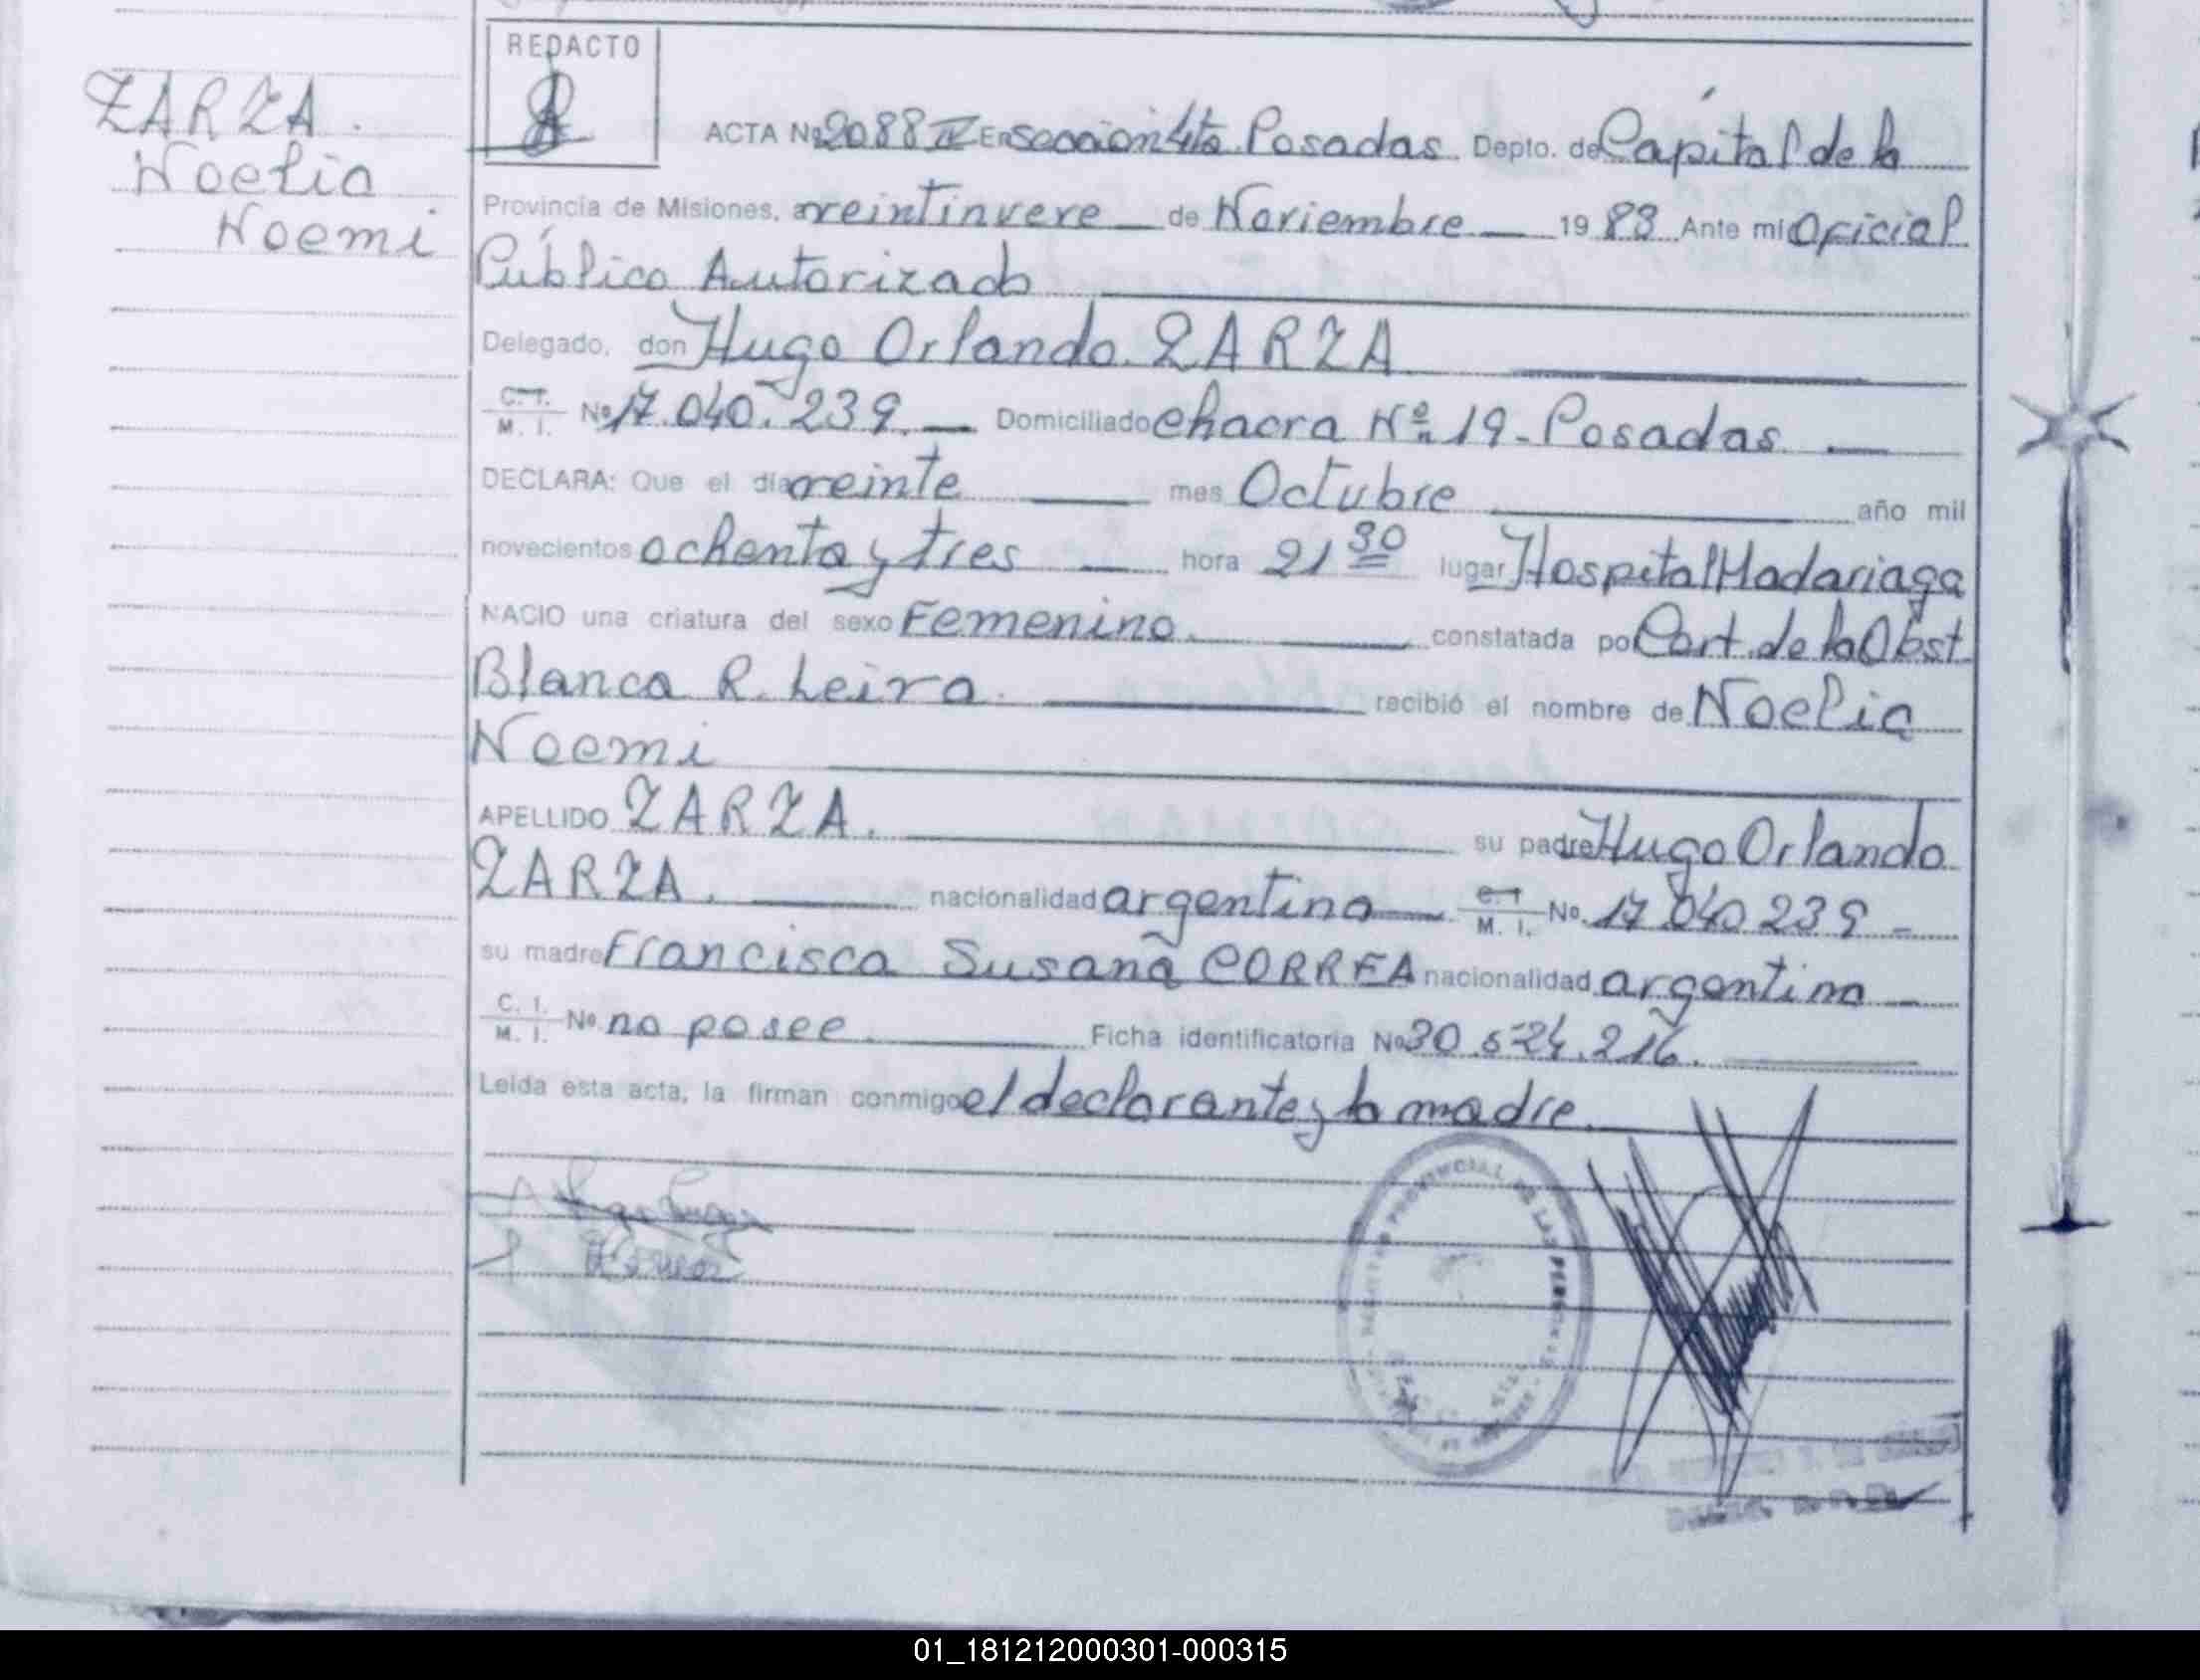 REDACTO
ZARZA.
Noelia
Noemi
ACTA Nº 2088 IV En sección 4ta Posadas Depto. de Capital de la
Provincia de Misiones, a veintinueve de Noviembre 1983 Ante mi Oficial
Público Autorizado
Delegado, don Hugo Orlando ZARZA
C. I. M. I. Nº 17.040.239. Domiciliado chacra Nº 19 - Posadas
DECLARA: Que el día veinte mes Octubre año mil
novecientos ochenta y tres hora 21 30 lugar Hospital Madariaga
NACIO una criatura del sexo Femenino constatada po Cert. de la Obst
Blanca R. Leiva. recibió el nombre de Noelia
Noemi
APELLIDO ZARZA. su padre Hugo Orlando
ZARZA. nacionalidad argentino C. I. M. I. No. 17 040 239 -
su madre Francisca Susana CORREA nacionalidad argentina
C. I. M. I. Nº no posee Ficha identificatoria Nº 30.524.216.
Leida esta acta, la firman conmigo el declarante y la madre.
PROVINCIAL DE LAS PERSONAS
01_181212000301-000315